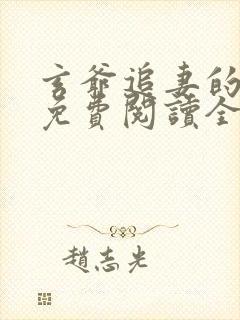 玄爺追妻的
免費閱讀全
趙志光